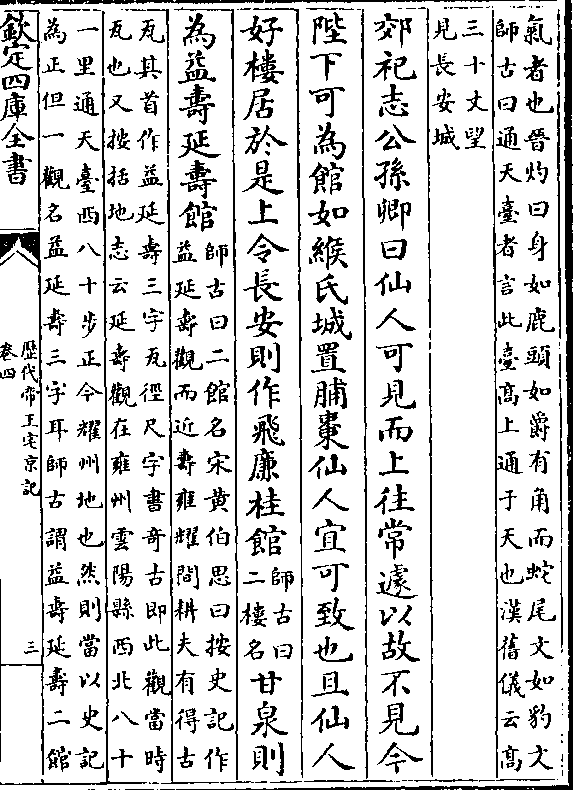 氣者也晉灼曰身如鹿頭如爵有角而蛇尾文如豹文
師古曰通天臺者言此臺髙上通于天也漢舊儀云髙
三十丈望
見長安城
郊祀志公孫卿曰仙人可見而上往常遽以故不見今
陛下可為館如緱氏城置脯棗仙人宜可致也且仙人
好樓居於是上令長安則作飛廉桂館師古曰
二樓名甘泉則
為益壽延壽館師古曰二館名宋黄伯思曰按史記作
益延壽觀而近嵗雍耀間耕夫有得古
瓦其首作益延壽三字瓦徑尺字書奇古即此觀當時
瓦也又按括地志云延壽觀在雍州雲陽縣西北八十
一里通天臺西八十步正今耀州地也然則當以史記
為正但一觀名益延壽三字耳師古謂益壽延壽二館
欽定四庫全書
歴代帝王宅京記
卷四
三